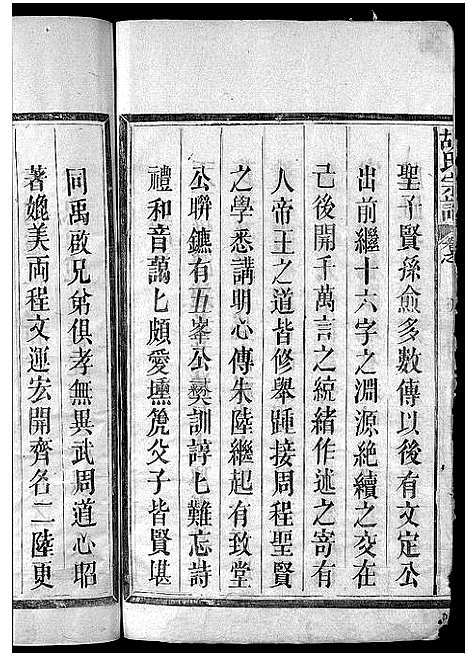 胡氏宗譜
聖子賢孫愈多數傳以後有文定公
出前繼十六字之淵源絶續之交在
己後開千萬言之統緒作述之寄有
人帝王之道皆修舉踵接周程聖賢
之學悉講明心傳朱陸繼起有致堂
公聯鑣有五峯公奕訓諄匕難忘詩
禮和音藹匕頗愛壎箎父子皆賢堪
同禹啟兄弟俱孝無異武周道心昭
著媲美両程文運宏開齊名二陸更